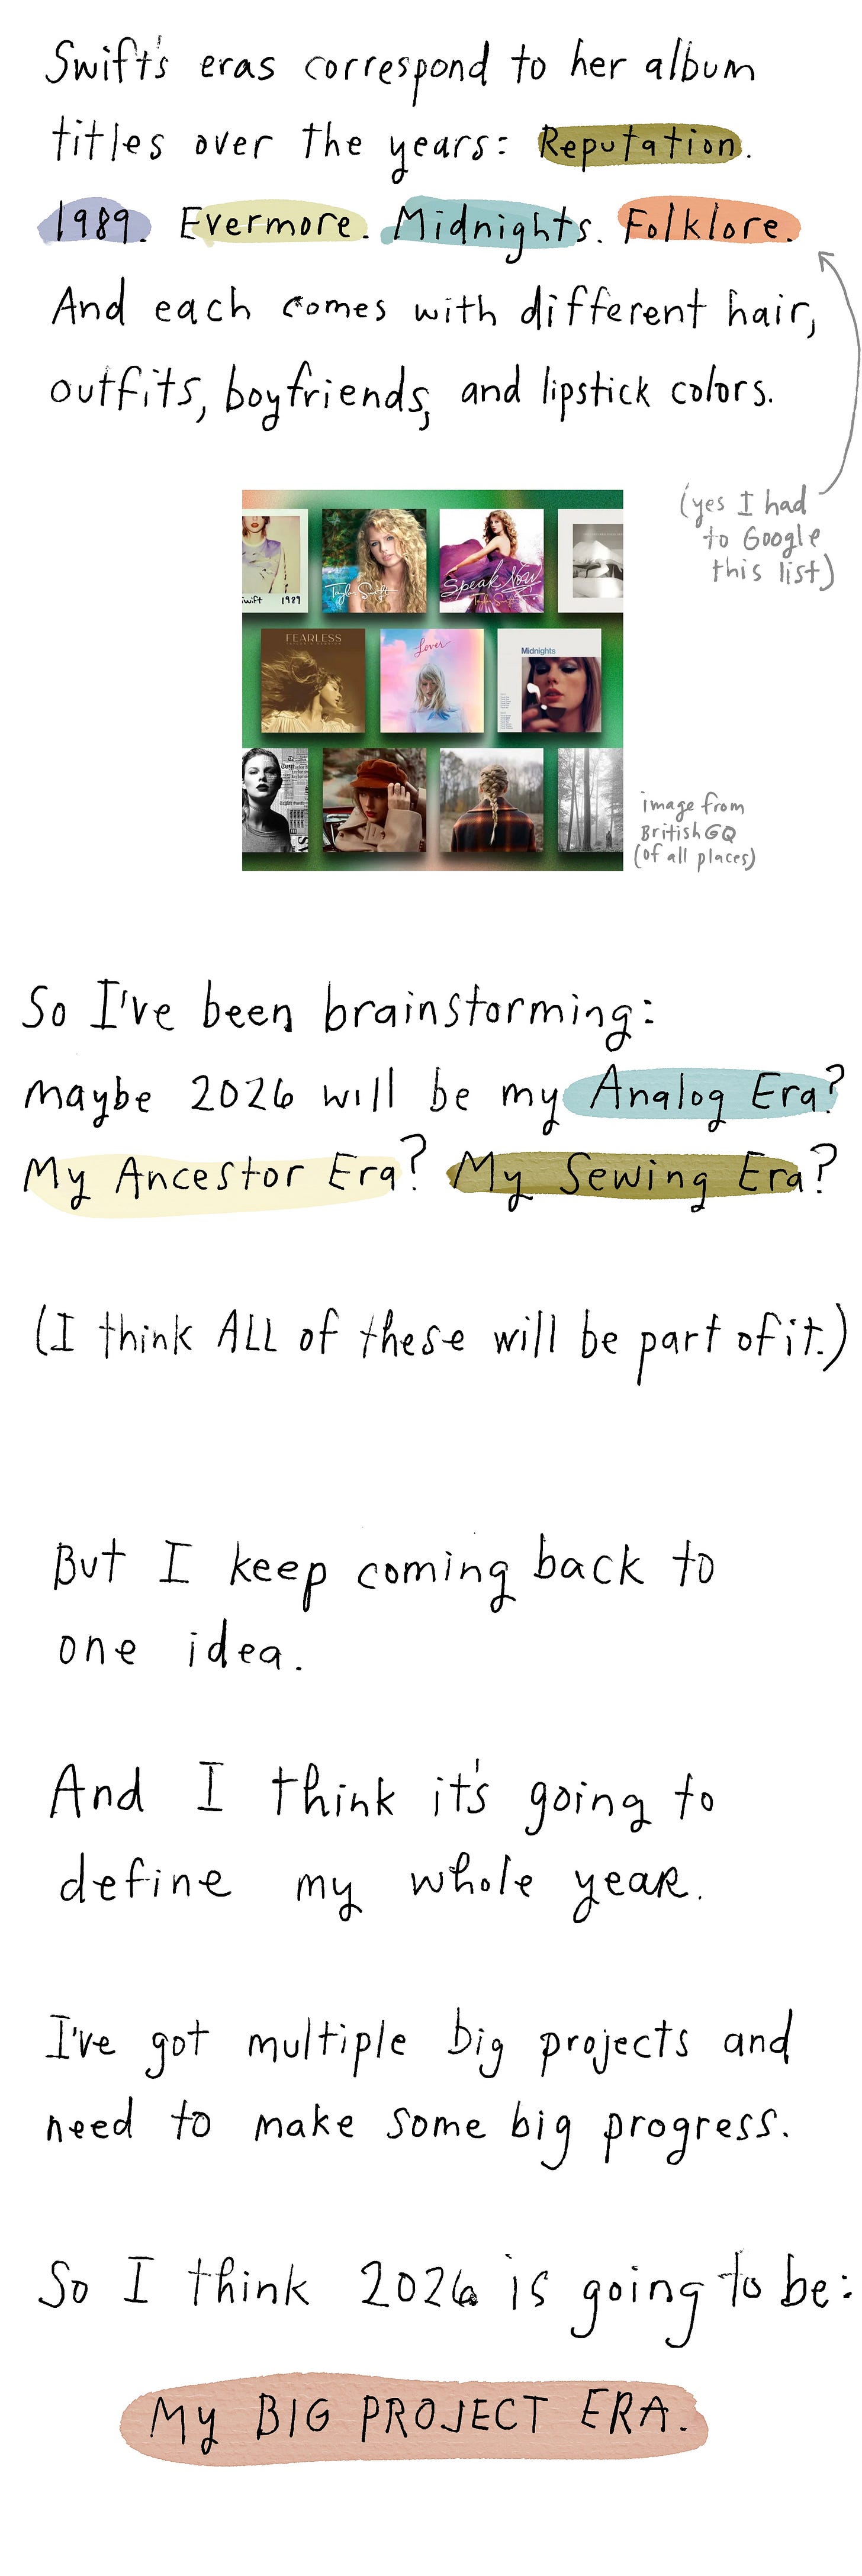 Swift's eras correspond to her album
titles over the years: Reputation.
1989. Evermore. Midnights. Folklore.
And each comes with different hair,
outfits, boyfriends, and lipstick colors.
(yes I had
to Google
this list)
wift 1989
Taylor Swift
Speak Now
Taylor Swift
FEARLESS
Lover
Midnights
image from
British GQ
(of all places)
So I've been brainstorming:
maybe 2026 will be my Analog Era?
My Ancestor Era? My Sewing Era?
(I think ALL of these will be part of it.)
But I keep coming back to
one idea.
And I think it's going to
define my whole year.
I've got multiple big projects and
need to make some big progress.
So I think 2026 is going to be:
My BIG PROJECT ERA.